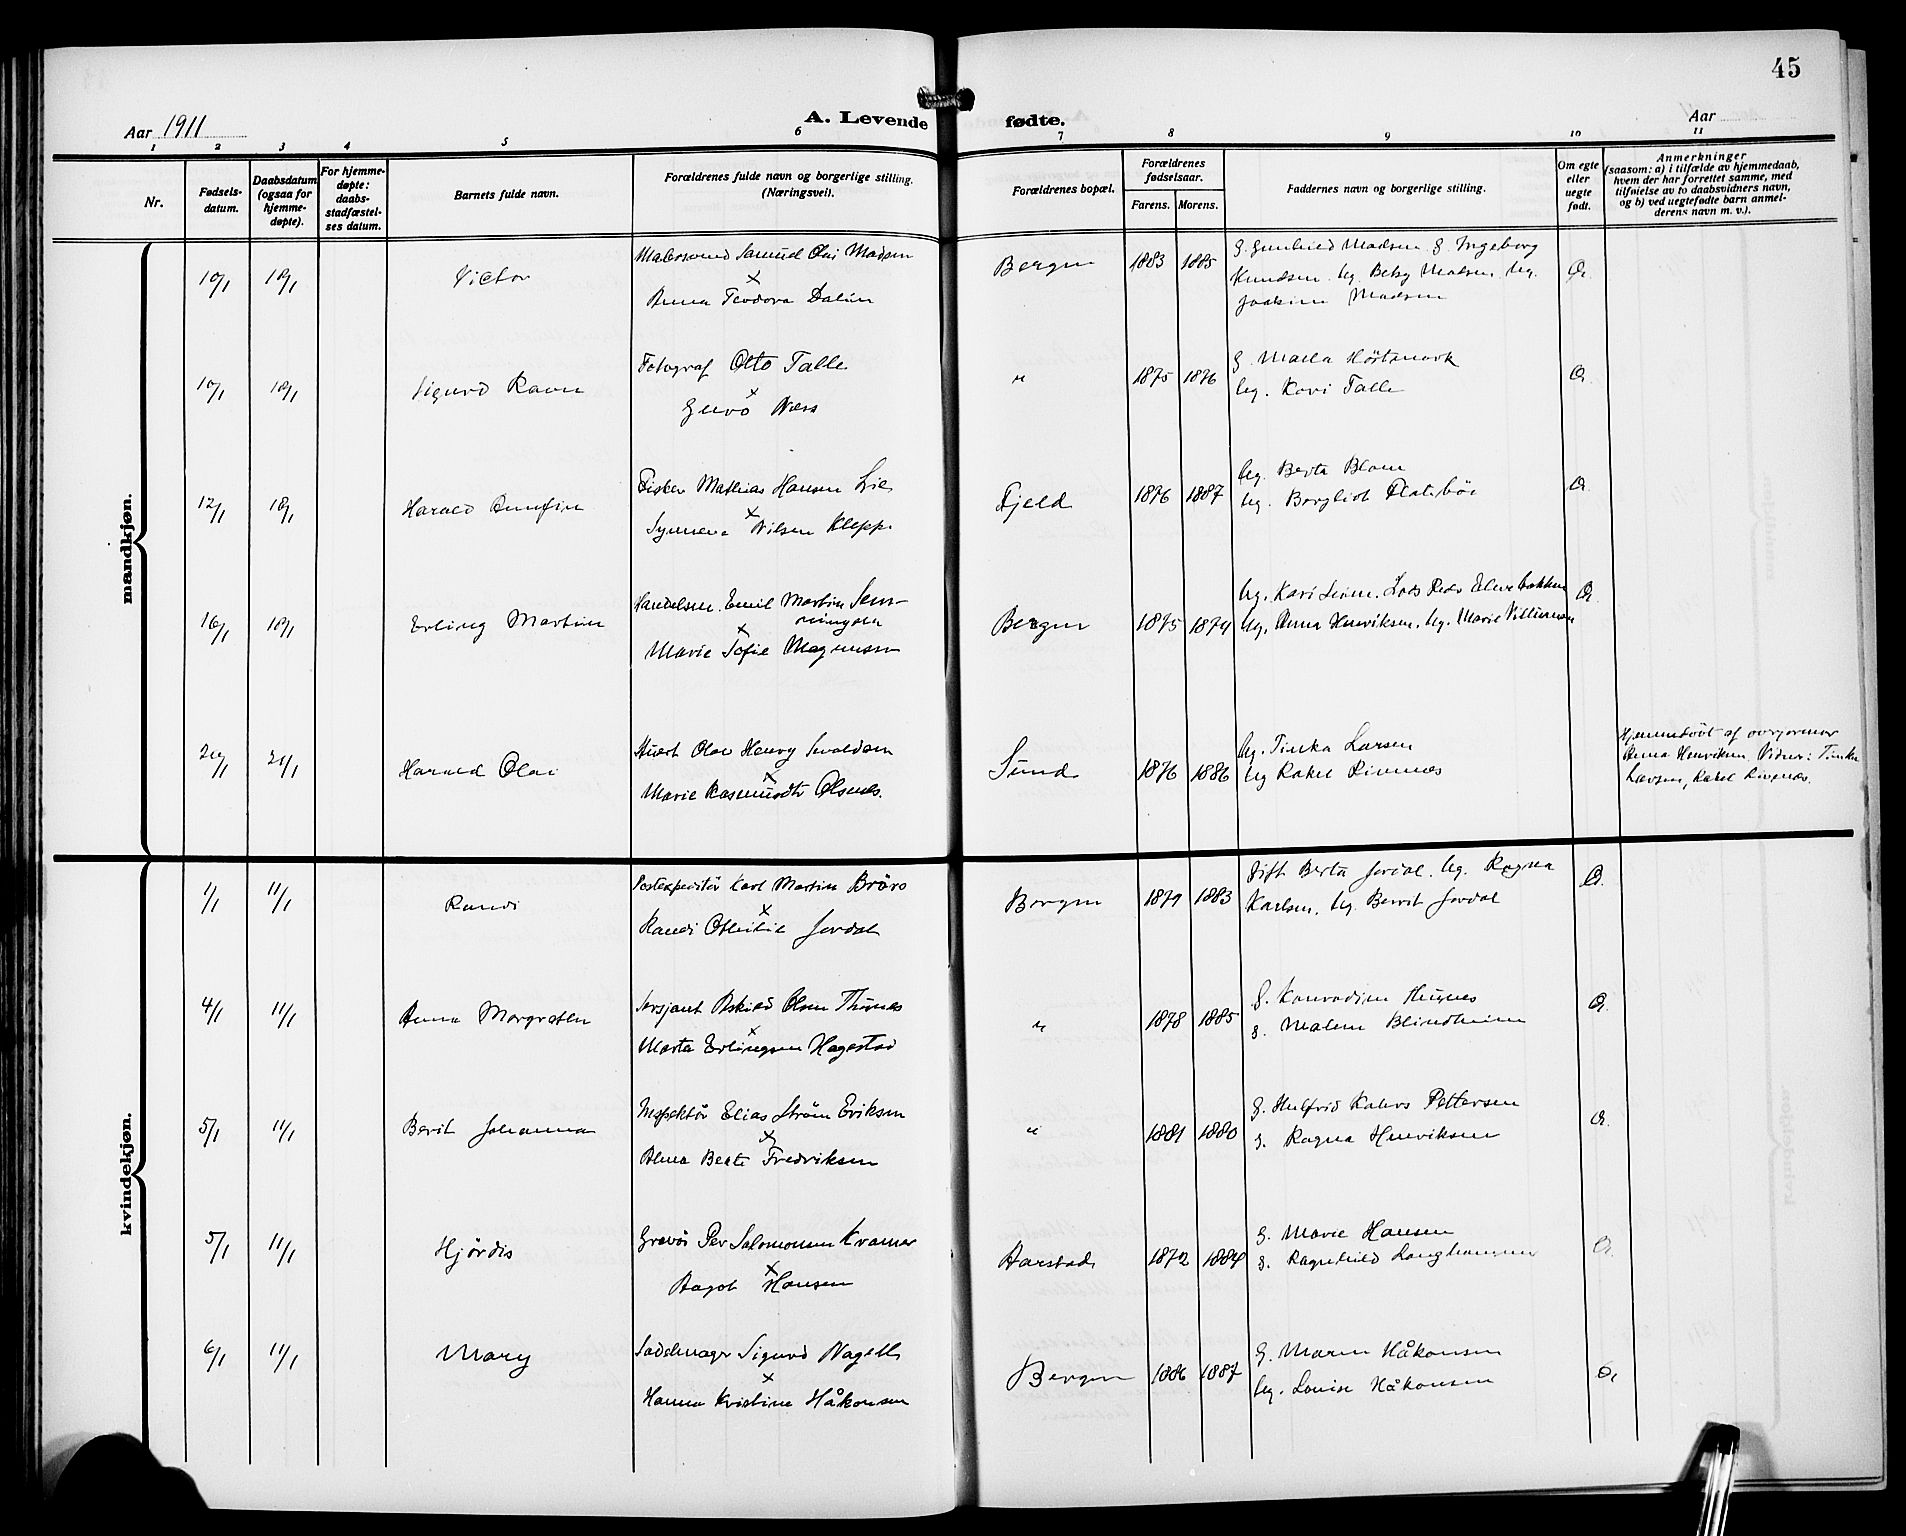 45
Aar 1911
A. Levende fødte.
Aar
1 2 3 4 5 6 7 8 9 10 11
Nr.
Fødsels-
datum.
Daabsdatum
(ogsaa for
hjemme-
døpte).
For hjemme-
døpte:
daabs-
stadfæstel-
ses datum.
Barnets fulde navn.
Forældrenes fulde navn og borgerlige stilling.
(Næringsvei).
Forældrenes bopæl.
Forældrenes
fødselsaar.
Farens. Morens.
Faddernes navn og borgerlige stilling.
Om egte
eller
uegte
født.
Anmerkninger
(saasom: a) i tilfælde av hjemmedaab,
hvem der har forrettet samme, med
tilføielse av to daabsvidners navn,
og b) ved uegtefødte barn anmel-
derens navn m. v.).
mandkjøn.
10/1 18/1 Victor
Malersvend Samuel Olai Madsen
x
Anna Teodora Dalin
Bergen 1883 1885
Madsen G. Ingeborg
Knudsen. Ug. Betsy Madsen. Ug.
Joakim Madsen
10/1 18/1 Sigurd Ravn
Fotograf Otto Talle
x
Guro Næss
" 1875 1876
Ug. Kari Talle
12/1 18/1 Harald
Fisker Mathias Hansen Lie
x
Synneva Nilsen Kleppe
Fjeld 1876 1887
Ug. Berta Blom
Ug. Borgliot
16/1 18/1 Erling Martin
Handelsm. Emil Martin Sen-
x
Marie Sofie Magnussen
Bergen 1875 1874
Ug. Kari
Ug. Anna Henriksen. Ug. Marie
21/1 Harald Olai
Olav Henry
x
Marie Olsnes.
Sund 1876 1886
Ug. Tinka Larsen
Ug Rakel
Hjemmedøbt af
Anna Henriksen. Vidner: Tinka
Larsen, Rakel
kvindekjøn.
1/1 11/1 Randi
Postexpeditør Karl Martin Brörs
x
Randi Jordal
Bergen 1879 1883
Gift Berta Jordal. Ug. Ragna
Karlsen. Ug. Berit Jordal
4/1 11/1 Anna Margrethe
Sersjant Askild Olsen
x
Marta Erlingsen Hagestad
" 1878 1885
G. Konradine
G. Malene Blindheim
5/1 11/1 Berit Johanna
Inspektör Elias Ström Eriksen
x
Alma Beate Fredriksen
" 1881 1880
G. Pettersen
G. Ragna Henriksen
5/1 11/1 Hjördis
Gravör Per Salomonsen Kramer
x
Hansen
Harstad 1872 1884
G. Marie Hansen
G. Ragnhild
6/1 11/1 Mary
Sadelmager Sigurd Nagell
x
Hanna Kristine Håkonsen
Bergen 1886 1887
G. Maren Håkonsen
Ug. Louise Håkonsen